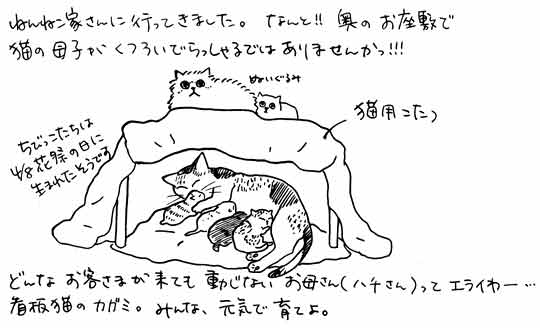 ねんねこ家さんに行ってきました。なんと!! 奥のお座敷で
猫の母子がくつろいでらっしゃるではありませんかっ!!!
ぬいぐるみ
猫用こたつ
ちびっこたちは
4/8花祭の日に
生まれたそうです
どんなお客さまが来ても動じないお母さん(ハチさん)ってエライわー…
看板猫のカガミ。みんな、元気で育てよ。